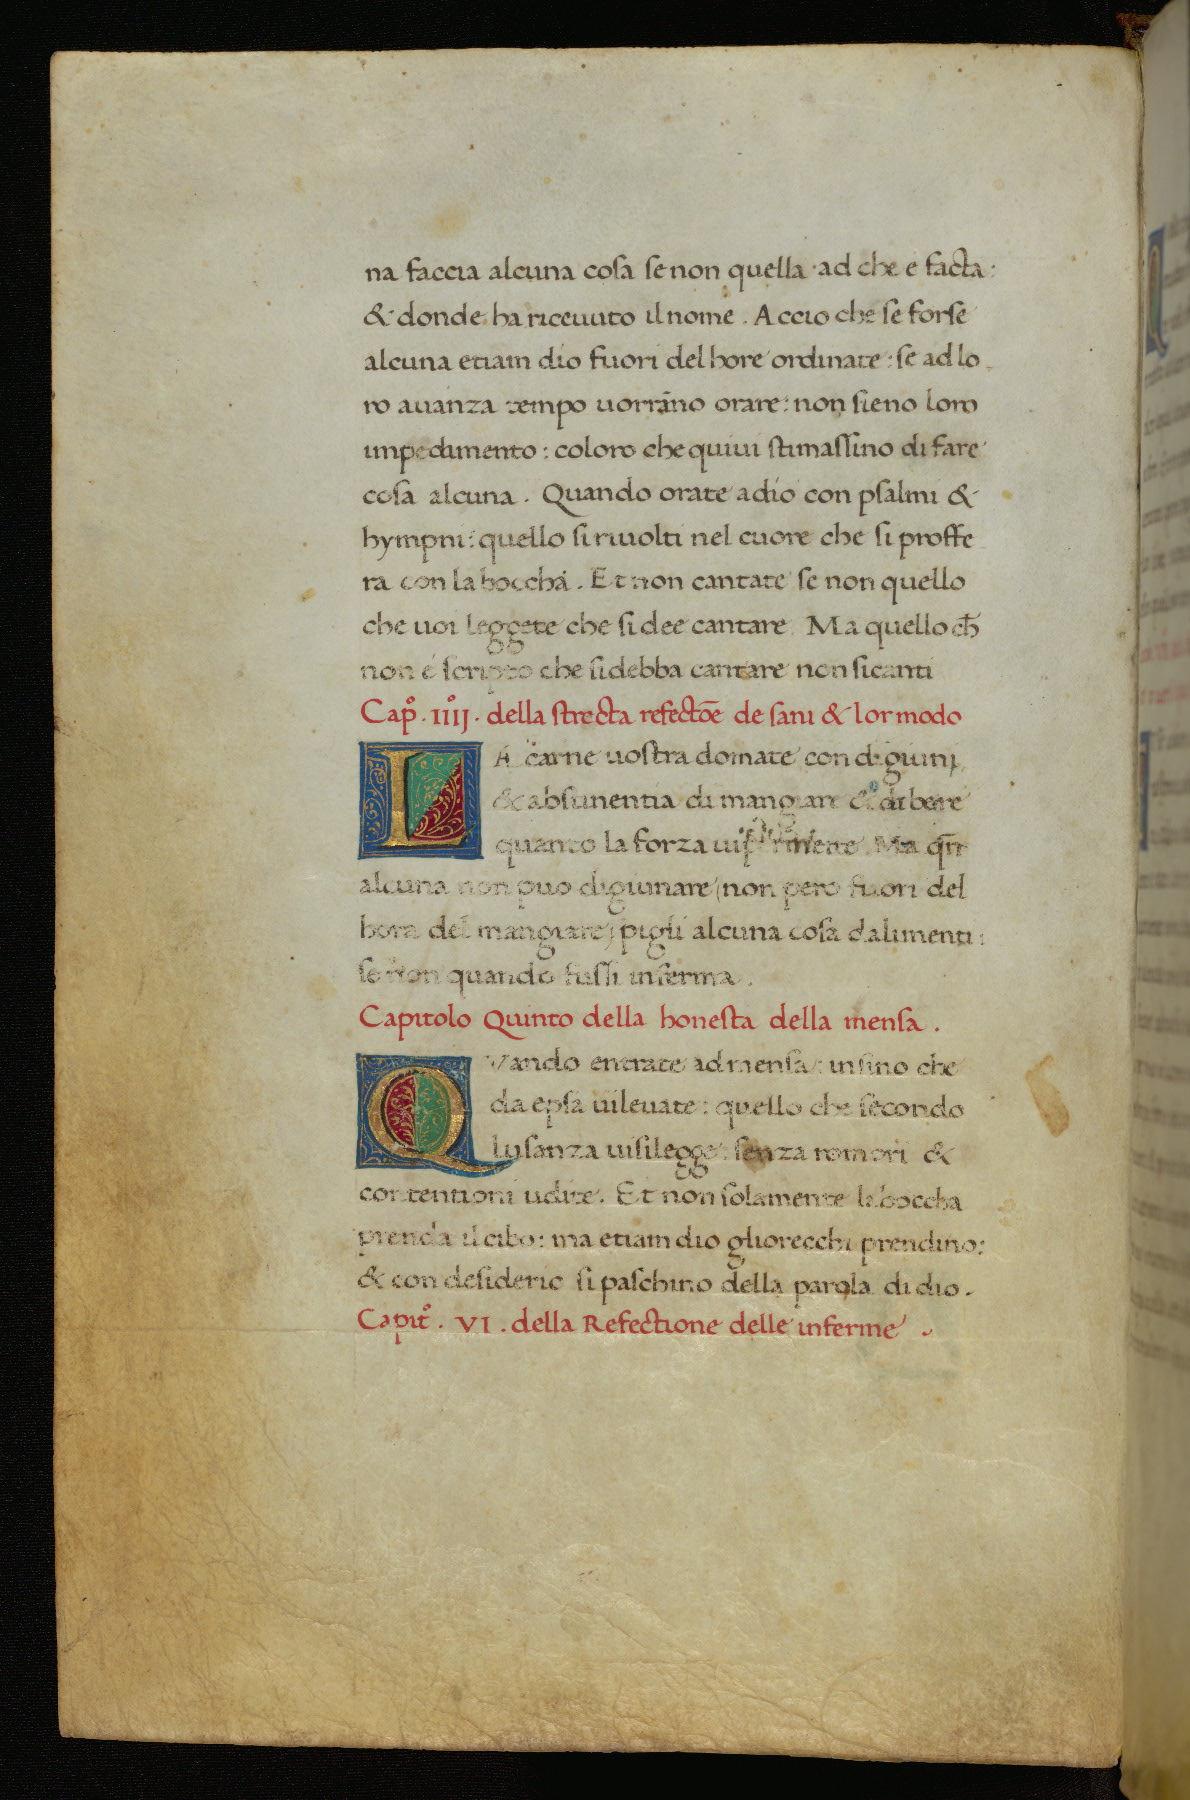 na faccia alcuna cosa se non quella ad che e facta:
& donde ha ricevuto il nome. Accio che se forse
alcuna etiam dio fuori del hore ordinate: se ad lo
ro auanza tempo uorrãno orare: non sieno loro
impedimento: coloro che quiui stimassino di fare
cosa alcuna. Quando orate adio con psalmi &
hympni: quello si riuolti nel cuore che si proffe
ra con la boccha. Et non cantate se non quello
che uoi leggete che si dee cantare. Ma quello ch̄
non é scripto che si debba cantare non si canti
Cap̊. IIIJ. della strecta refectōe de sani & lor modo
LA carne uostra domate con digiuni
& abstinentia di mangiare & di bere
quanto la forza ui permette. Ma qñ
alcuna non puo digiunare (non pero fuori del
hora del mangiare) pigli alcuna cosa dalimenti:
se non quando fussi inferma.
Capitolo Quinto della honesta della mensa.
QVando entrate ad mensa: insino che
da epsa ui leuate: quello che secondo
lusanza ui si legge: senza romori &
contentioni udite. Et non solamente la boccha
prenda il cibo: ma etiam dio gliorecchi prendino:
& con desiderio si paschino della parola di dio.
Capit̊. VI. della Refectione delle inferme.